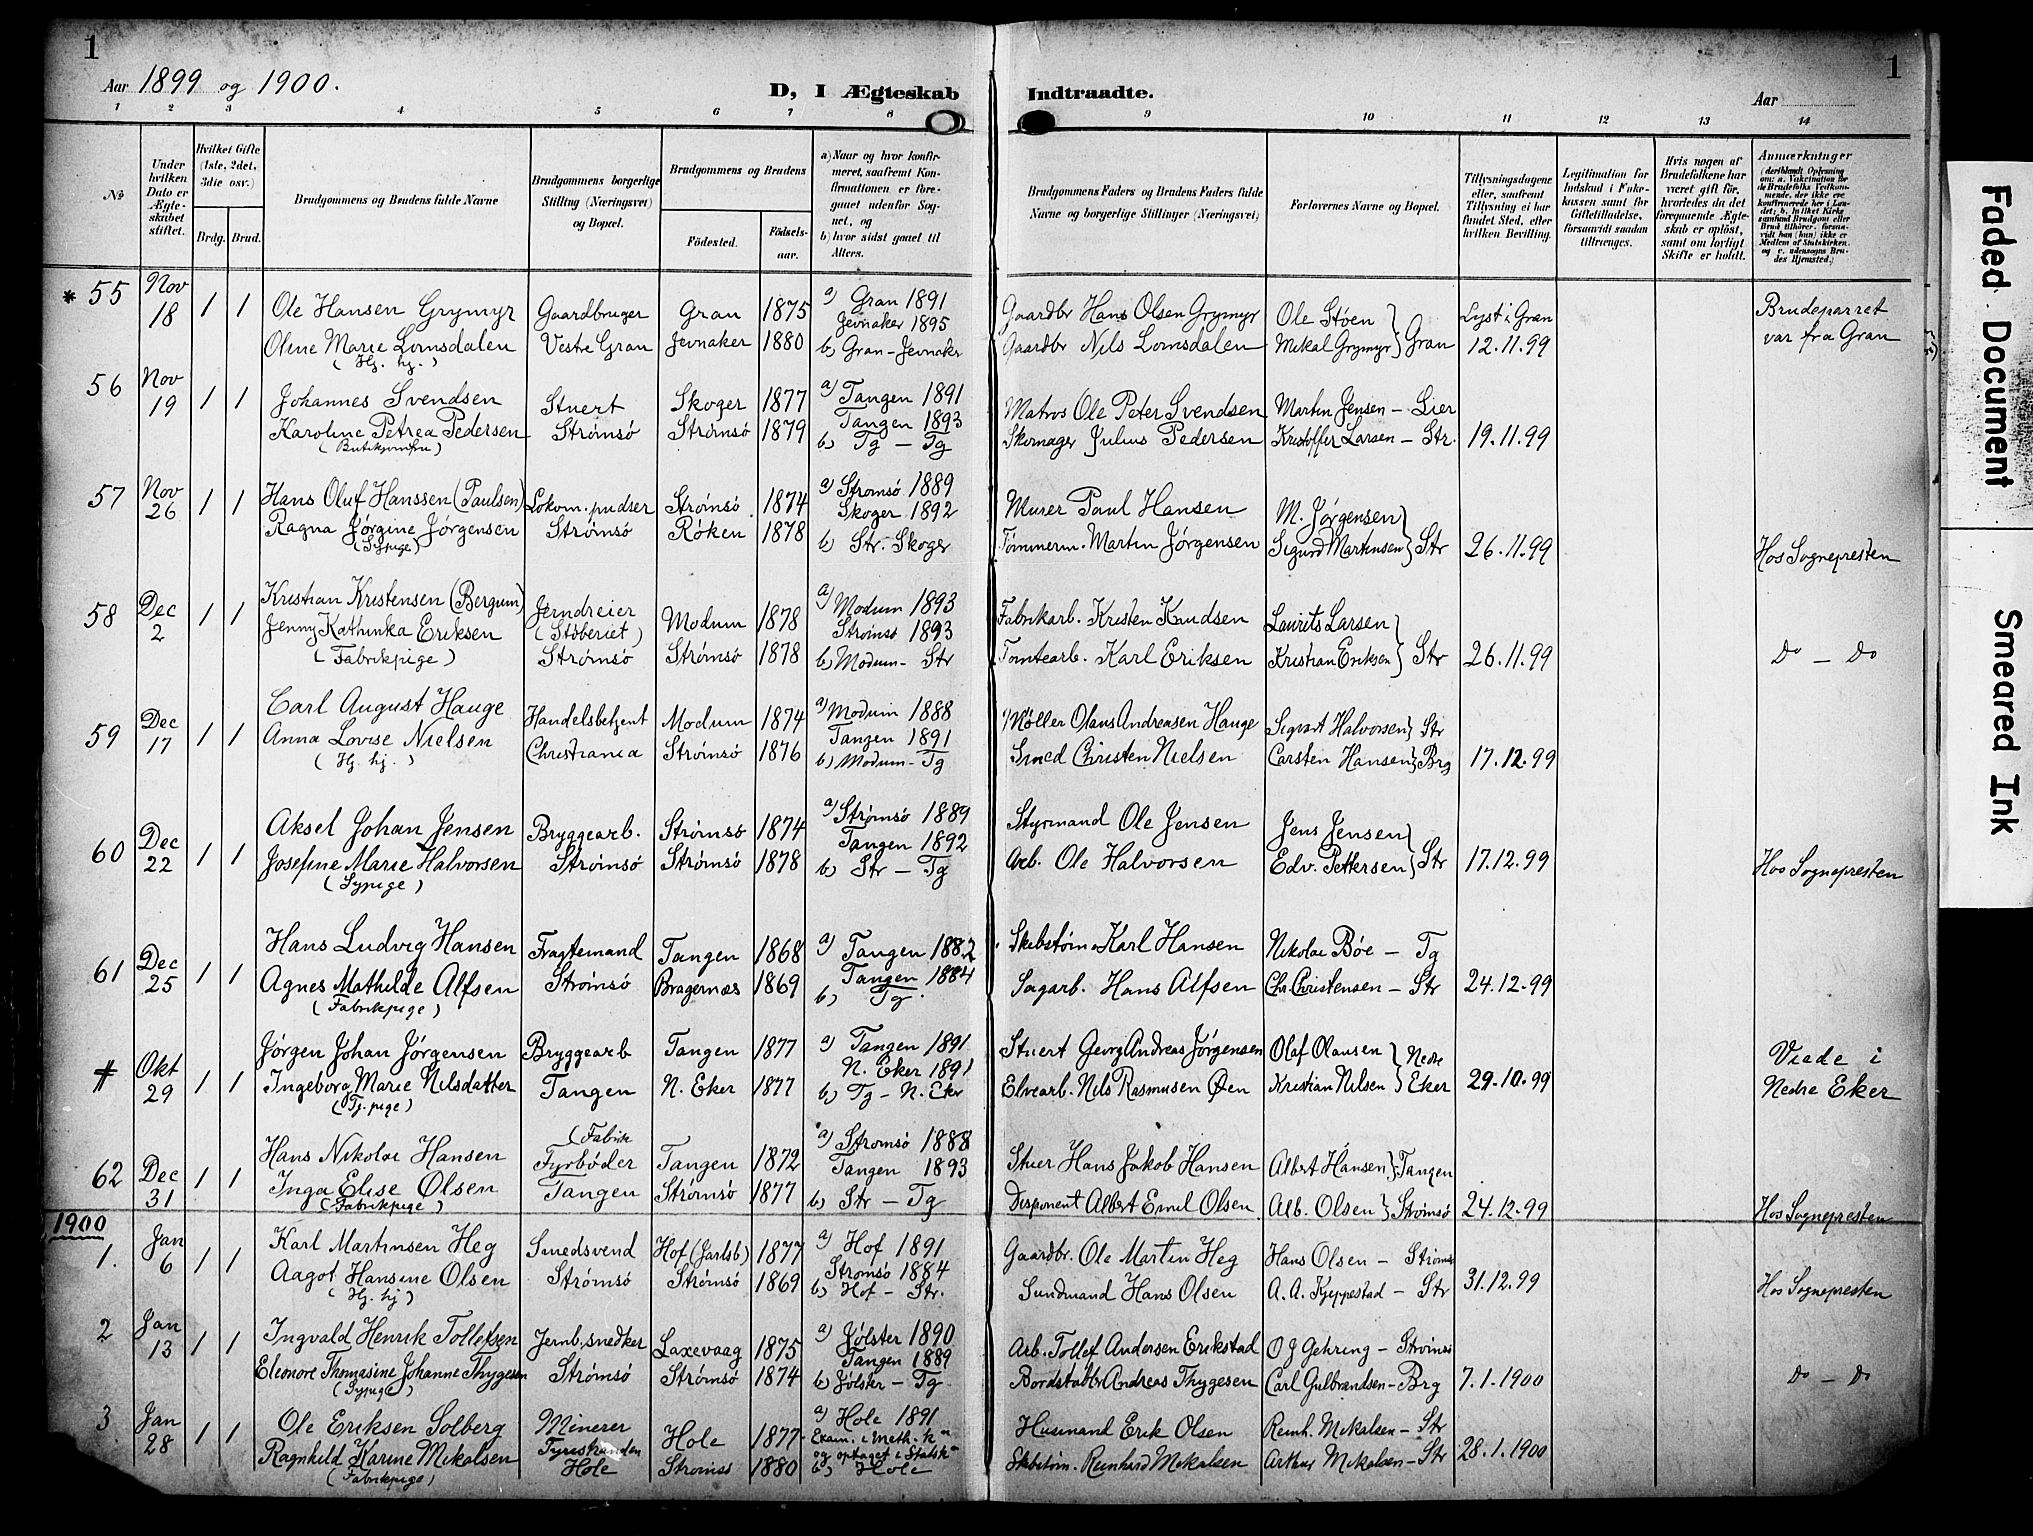 1
1
Aar 1899 og 1900.
D, I Ægteskab Indtraadte.
Aar
1 2 3 4 5 6 7 8 9 10 11 12 13 14
№
Under hvilken Dato er Ægteskabet stiftet.
Hvilket Gifte (1ste, 2det, 3die osv.)
Brdg. Brud.
Brudgommens og Brudens fulde Navne
Brudgommens borgerlige Stilling (Næringsvei) og Bopæl.
Brudgommens og Brudens
Fødested.
Fødselsaar.
a) Naar og hvor konfirmeret, saafremt Konfirmationen er foregaaet udenfor Sognet, og
b) hvor sidst gaaet til Alters.
Brudgommens Faders og Brudens Faders fulde Navne og borgerlige Stillinger (Næringsvei)
Forlovernes Navne og Bopæl.
Tillysningsdagene eller, saafremt Tillysning ei har fundet Sted, efter hvilken Bevilling.
Legitimation for Indskud i Enkekassen samt for Giftetilladelse, forsaavidt saadan tiltrænges.
Hvis nogen af Brudefolkene har været gift før, hvorledes da det foregaaende Ægteskab er opløst, samt om lovligt Skifte er holdt.
Anmærkninger
(deriblandt Oplysning om: a. Vakcination for de Brudefolks Vedkommende, der ikke ere konfirmerede her i Landet; b. hvilket Kirkesamfund Brudgom eller Brud tilhører, forsaavidt han (hun) ikke er Medlem af Statskirken, og c. udensogns Brudes Hjemsted.)
* 55 Nov 18 1 1 Ole Hansen Grymyr Gaardbruger Gran 1875 a) Gran 1891 Gaardbr Hans Olsen Grymyr Ole Støen Lyst i Gran Brudeparret
Oline Marie Lomsdalen Vestre Gran Jevnaker 1880 Jevnaker 1895 b) Gran - Jevnaker Gaardbr Nils Lomsdalen Mikal Grymyr } Gran 12.11.99 var fra Gran
(Hj. hj.)
56 Nov 19 1 1 Johannes Svendsen Stuert Skoger 1877 a) Tangen 1891 Matros Ole Peter Svendsen Martin Jensen - Lier
Karoline Petrea Pedersen Strømsø Strømsø 1879 Tangen 1893 b) Tg - Tg Skomager Julius Pedersen Kristoffer Larsen - Str. 19.11.99
(Butikjomfru)
57 Nov 26 1 1 Hans Oluf Hanssen (Paulsen) Lokom.pudser Strømsø 1874 a) Strømsø 1889 Murer Paul Hansen M. Jørgensen
Ragna Jørgine Jørgensen Strømsø Røken 1878 Skoger 1892 b) Str. Skoger Tømmerm. Martin Jørgensen Sigurd Martinsen } Str 26.11.99 Hos Sognepresten
(Sypige)
58 Dec 2 1 1 Kristian Kristensen (Bergum) Jerndreier (Støberiet) Modum 1878 a) Modum 1893 Fabrikarb. Kristen Knudsen Laurits Larsen
Jenny Kathinka Eriksen Strømsø Strømsø 1878 Strømsø 1893 b) Modum - Str Tomtearb. Karl Eriksen Kristian Eriksen } Str 26.11.99 Do - Do
(Fabrikpige)
59 Dec 17 1 1 Carl August Hauge Handelsbetjent Modum 1874 a) Modum 1888 Møller Olaus Andreasen Hauge Sigvart Halvorsen } Str
Anna Lovise Nielsen Christiania Strømsø 1876 Tangen 1891 b) Modum - Tg Smed Christen Nielsen Carsten Hansen } Brg 17.12.99
(Hj. hj.)
60 Dec 22 1 1 Aksel Johan Jensen Bryggearb. Strømsø 1874 a) Strømsø 1889 Styrmand Ole Jensen Jens Jensen
Josefine Marie Halvorsen Strømsø Strømsø 1878 Tangen 1892 b) Str - Tg Arb. Ole Halvorsen Edv. Pettersen } Str 17.12.99 Hos Sognepresten
(Sypige)
61 Dec 25 1 1 Hans Ludvig Hansen Fragtemand Tangen 1868 a) Tangen 1882 Skibstøm. Karl Hansen Nikolai Bøe - Tg
Agnes Mathilde Alfsen Strømsø Bragernæs 1869 Tangen 1884 b) Tg. Sagarb. Hans Alfsen Chr. Christensen - Str 24.12.99
(Fabrikpige)
# Okt 29 1 1 Jørgen Johan Jørgensen Bryggearb Tangen 1877 a) Tangen 1891 Stuert Georg Andreas Jørgensen Olaf Olausen Viede i
Ingeborg Marie Nilsdatter Tangen N. Eker 1877 N. Eker 1891 b) Tg - N. Eker Elvearb. Nils Rasmusen Øen Kristian Nilsen } Nedre Eker 29.10.99 Nedre Eker
(Tj. pige)
62 Dec 31 1 1 Hans Nikolai Hansen (Fabrik Fyrbøder Tangen 1872 a) Strømsø 1888 Stuer Hans Jakob Hansen Albert Hansen } Tangen
Inga Elise Olsen Tangen Strømsø 1877 Tangen 1893 b) Str - Tg Disponent Albert Emil Olsen Alb. Olsen } Strømsø 24.12.99 Hos Sognepresten
(Fabrikpige)
1900
1. Jan 6 1 1 Karl Martinsen Heg Smedsvend Hof (Jarlsb) 1877 a) Hof 1891 Gaardbr. Ole Martin Heg Hans Olsen - Strømsø
Aagot Hansine Olsen Strømsø Strømsø 1869 Strømsø 1884 b) Hof - Str. Sundmand Hans Olsen A. A. Kjeppestad - Str 31.12.99 Hos Sognepresten
(Hj. hj)
2 Jan 13 1 1 Ingvald Henrik Tollefsen Jernb.snedker Laxevaag 1875 a) Jølster 1890 Arb. Tollef Andersen Erikstad O J Gehring - Strømsø
Eleonore Thomasine Johanne Thygesen Strømsø Strømsø 1874 Tangen 1889 b) Jølster - Tg Bordstabl. Andreas Thygesen Carl Gulbrandsen - Brg 7.1.1900 Do - Do
(Sypige)
3 Jan 28 1 1 Ole Eriksen Solberg Minerer Hole 1877 a) Hole 1891 Husmand Erik Olsen Reinh. Mikalsen - Str
Ragnhild Karine Mikalsen Tyristranden Hole Strømsø 1880 Exam. i Meth. k. og optaget i Statsk. b) Hole Skibstøm. Reinhard Mikalsen Arthur Mikalsen - Str 28.1.1900
(Fabrikpige)
Faded Document
Smeared Ink